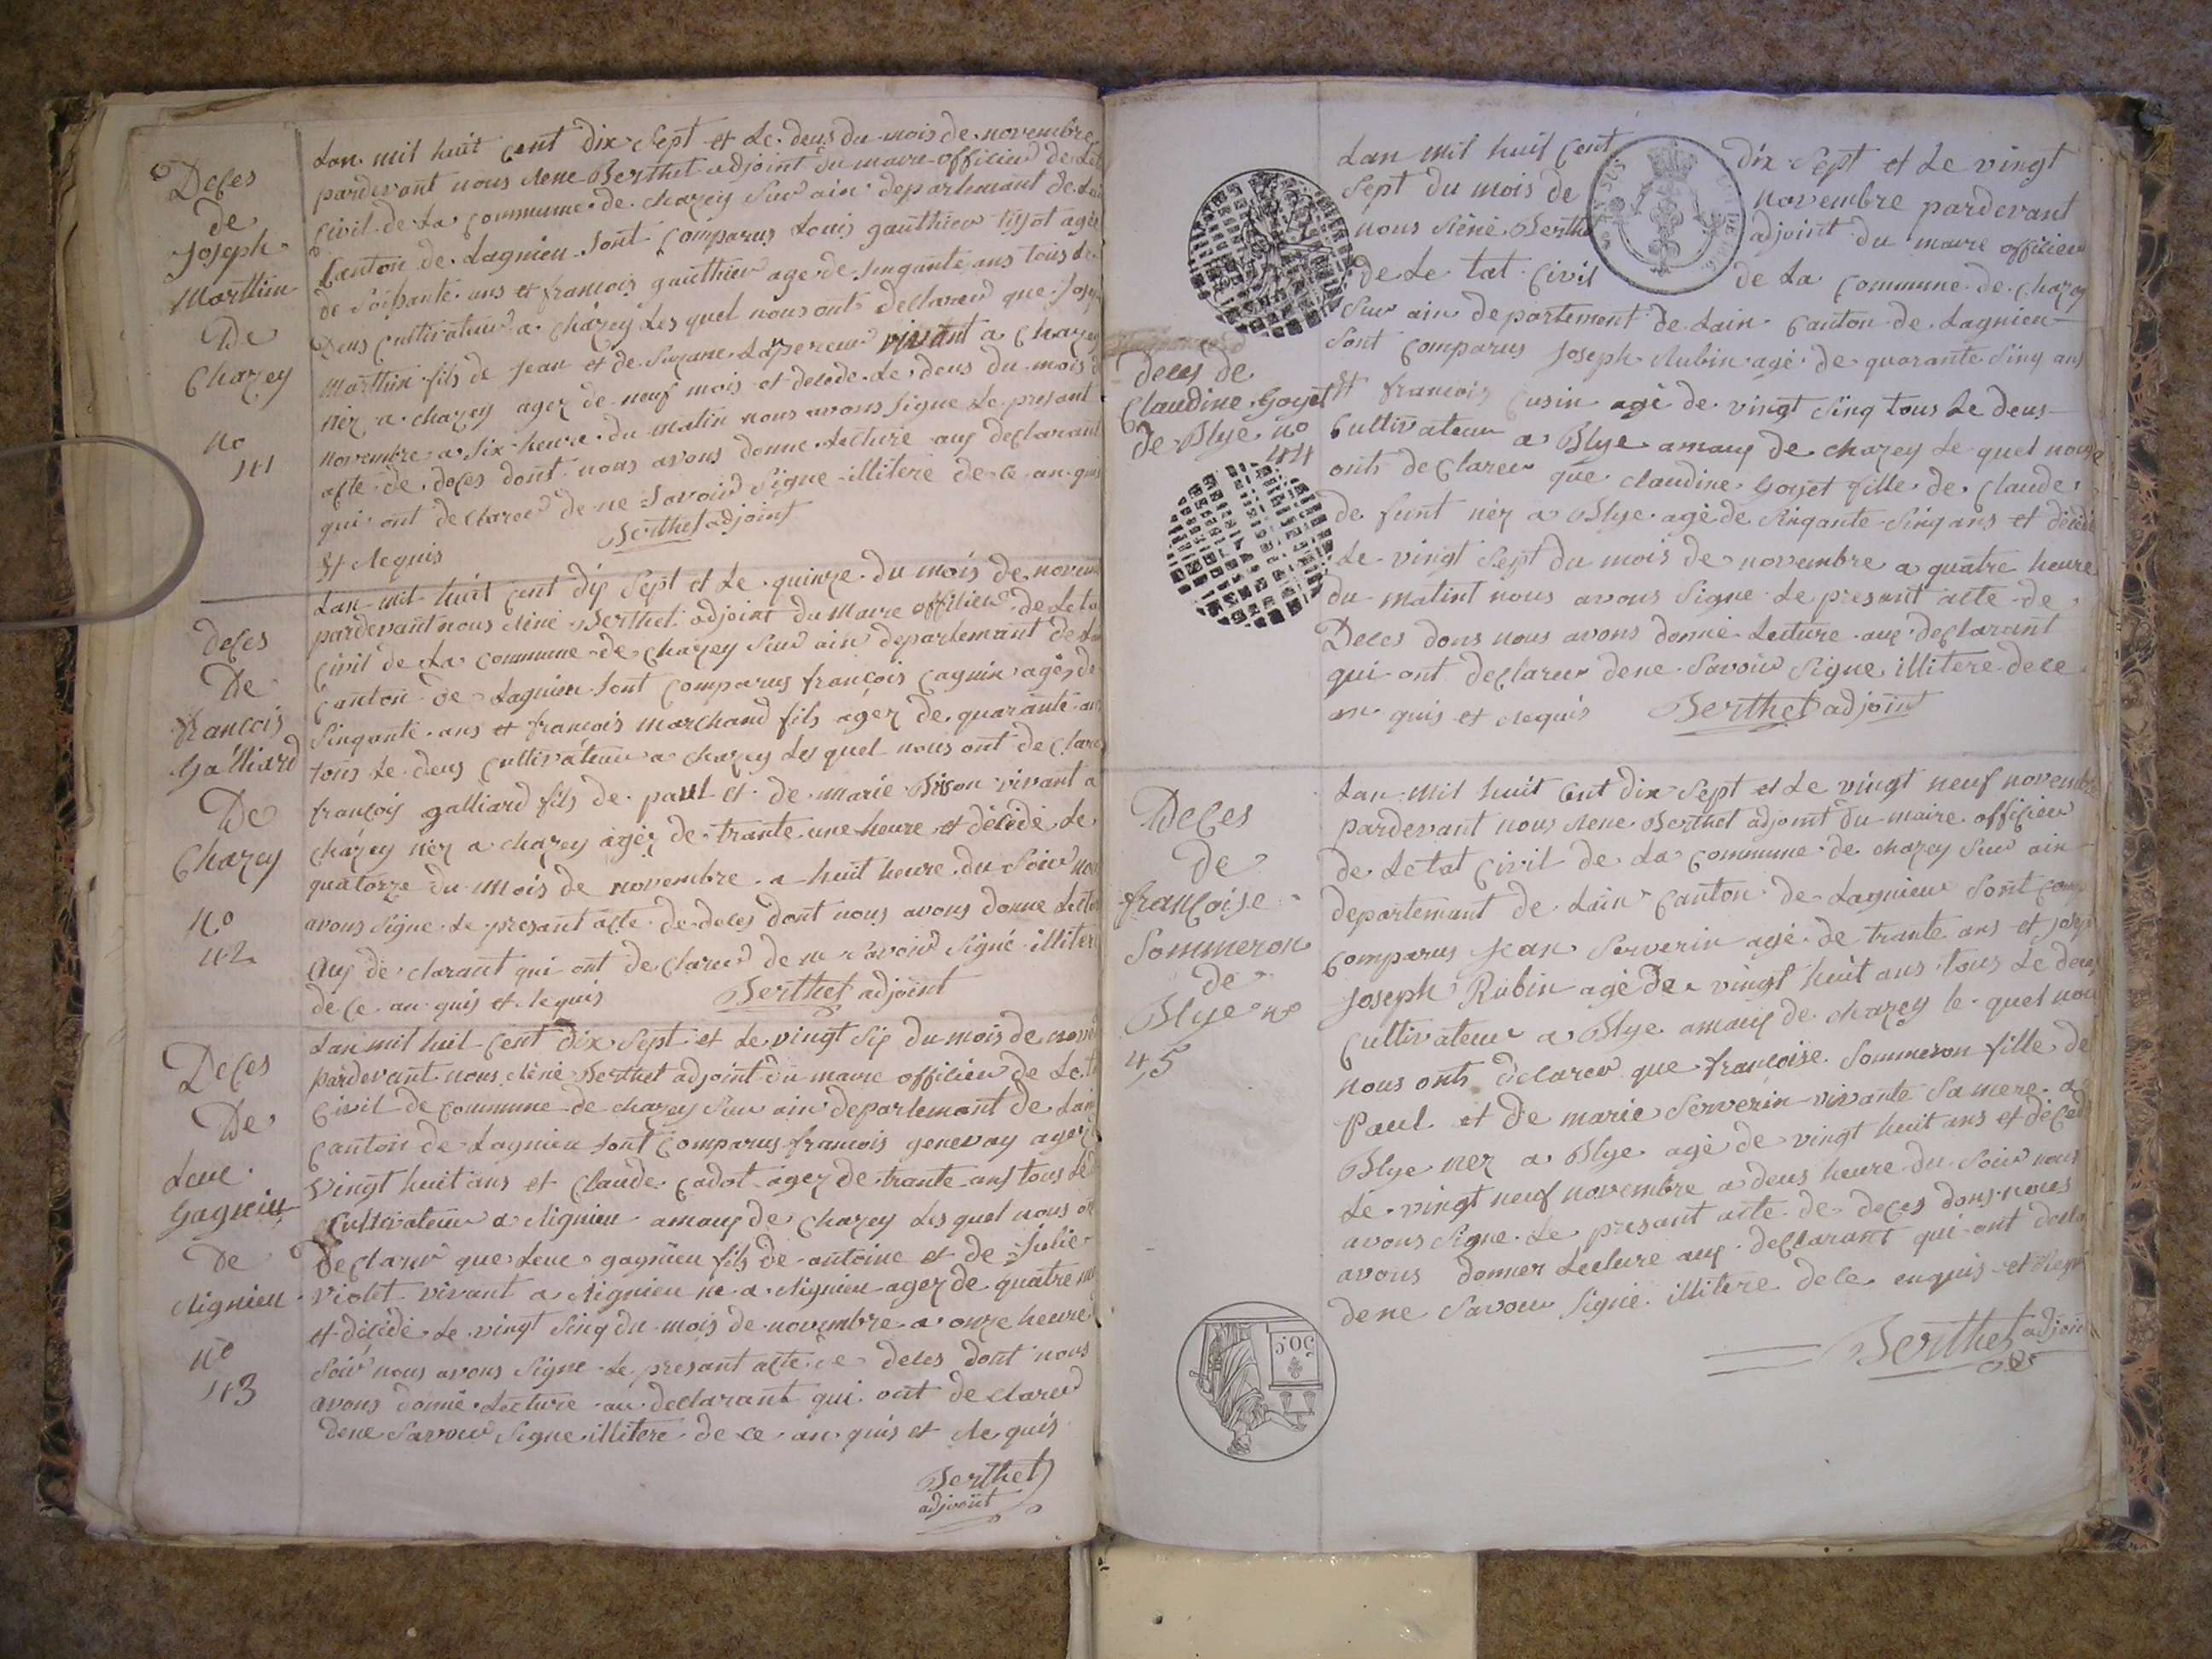 Deces
de
Joseph
Marthin
De
Chazey
no
41
Lan mil huit cent dix sept et le deus du mois de novembre
pardevant nous Rene Berthet adjoint du maire officier de Let
Civil de La commune de chazey sur ain departemant de Lai
Canton de Lagnieu sont comparus Louis gauthier tissot agée
de soisante ans et francois gauthier age de sinqante ans tous Le
Deus cultivateur a chazey Les quel nous onts declarer que Josep
Marthin fils de Jean et de Suzane Lapereur vivant a Chazey
néz a chazey agez de neuf mois et decede Le deus du mois d
novembre a six heure du matin nous avons signe Le presant
acte de deces dont nous avons donne Lecture aux declarant
qui ont declarer de ne savoir signe illitere de ce an quis
Et Requis
Berthet adjoint
deces
De
francois
Galliard
De
Chazey
no
42
Lan mil huit cent dix sept et Le quinze du mois de novem
pardevant nous Réné Berthet adjoint du Maire officier de Leta
Civil de La commune de chazey sur ain departemant de Lai
Canton de Lagnieu sont comparus françois cagnin agéz de
sinqante ans et francois marchand fils agez de quarante an
tous Le deus cultivateur a chazey Les quel nous ont declare
françois galliard fils de paul et de marie Bison vivant a
chazey néz a chazey agéz de trante une heure et décédé Le
quatorze du mois de novembre a huit heure du soir nou
avons signe Le presant acte de deces dont nous avons donne Lectu
Aux declarant qui ont declarer de ne savoir signé illitere
de ce an quis et Requis
Berthet adjoint
Deces
De
Leue
Gagnieu
De
Rignieu
no
43
Lan mil huit cent dix sept et Le vingt six du mois de nove
pardevant nous Réné Berthet adjoint du maire officier de Leta
Civil de commune de chazey sur ain departemant de Lain
canton de Lagnieu sont comparus francois genevay agez
vingt huit ans et claude cadot agez de trante ans tous Le
Cultivateur a Rignieu amaux de chazey Les quel nous on
Declarer que Leue gagnieu fils de antoine et de Julie
violet vivant a Rignieu ne a Rignieu agez de quatre
et décédé Le vingt sinq du mois de novembre a onze heure
soir nous avons signe Le presant acte de deces dont nous
avons donné Lecture au declarant qui ont declarer
dene savoir signe illitere de ce an quis et Requis
Berthet
adjoint
deces de
Claudine Goyet
de Blye no
44
Lan mil huit cent dix sept et Le vingt
sept du mois de novembre pardevant
nous Réné Berthe adjoint du maire officier
de Le tat Civil de La commune de chazey
Sur ain departement de Lain Canton de Lagnieu
sont comparus Joseph Rubin agé de quarante sinq ans
Et francois cusin agé de vingt sinq tous Le deus
Cultivateur a Blye amaux de chazey Le quel nous
onts declarer que claudine Goyet fille de claude
de funt néz a Blye agé de sinqante sinq ans et décédé
Le vingt sept du mois de novembre a quatre heure
du matint nous avons signe Le presant acte de
Deces dons nous avons donné Lecture aux declarant
qui ont declarer dene savoir signe illitere de ce
an quis et Requis Berthet adjoint
Deces
de
françoise
Sommeron
de
Blye no
45
Lan mil huit cent dix sept et Le vingt neuf novembre
pardevant nous Rene Berthet adjoint du maire officier
de Letat civil de La commune de chazey sur ain
departemant de Lain canton de Lagnieu sont comp
comparus Jean Serverin agé de trante ans et josep
Joseph Rubin agé de vingt huit ans tous Le deus
cultivateur a Blye amaux de chazey le quel nou
nous onts declarer que françoise Sommeron fille de
Paul et de marie Serverin vivante sa mere a
Blye nez a Blye agé de vingt huit ans et décedé
Le vingt neuf novembre a deus heure du soir nous
avons signe Le presant acte de deces dons nous
avons donner Lecture aux declarant qui ont decla
dene savoir signe illitere de ce enquis et Requi
Berthet adjoin
50c